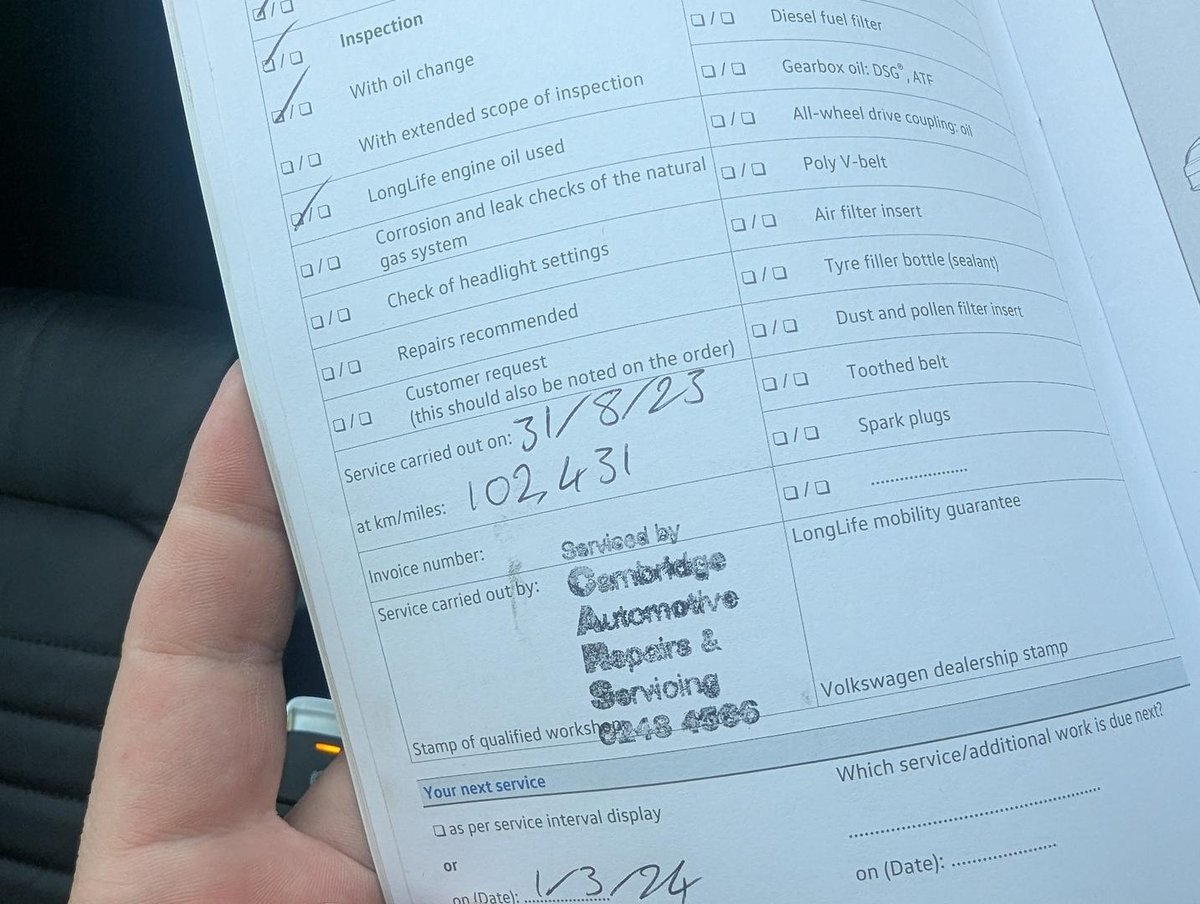 Inspection
With oil change
With extended scope of inspection
LongLife engine oil used
Corrosion and leak checks of the natural
gas system
Check of headlight settings
Repairs recommended
Customer request
(this should also be noted on the order)
Service carried out on: 31/8/23
at km/miles: 102,431
Invoice number:
Service carried out by:
Serviced by
Cambridge
Automotive
Repairs &
Servicing
Stamp of qualified workshop
Diesel fuel filter
Gearbox oil: DSG®, ATF
All-wheel drive coupling: oil
Poly V-belt
Air filter insert
Tyre filler bottle (sealant)
Dust and pollen filter insert
Toothed belt
Spark plugs
LongLife mobility guarantee
Volkswagen dealership stamp
Your next service
as per service interval display
or
on (Date): 1/3/24
Which service/additional work is due next?
on (Date):